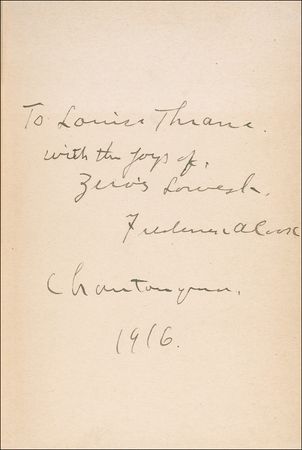 To Louise Thrane.
with the joys of,
Zero's Lowest.
Frederick A Cook
Chautauqua.
1916.